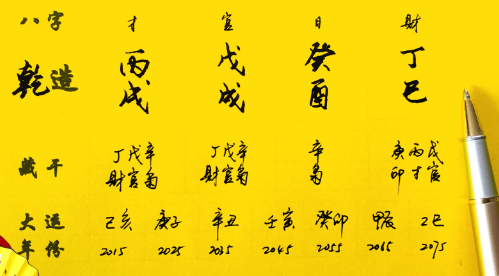 八字 才 官 日 財
乾造 丙 戊 癸 丁
戌 戌 酉 巳
藏干 丁戊辛 丁戊辛 辛 庚丙戊
財官 財官 卬才官
大运 己亥 庚子 辛丑 壬寅 癸卯 甲辰 乙巳
年份 2015 2025 2035 2045 2055 2065 2075